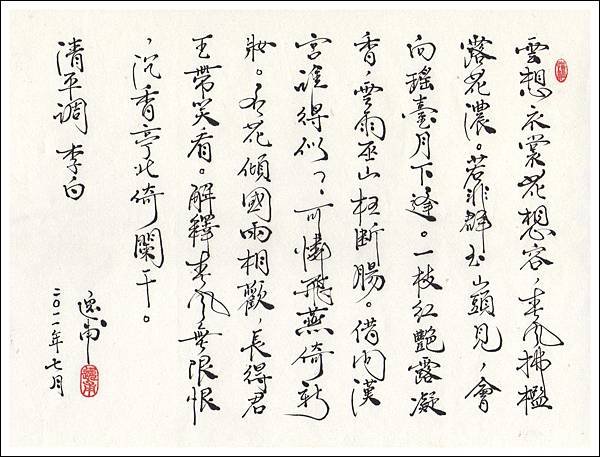 雲想衣裳花想容，春风拂檻
露花濃。若非群玉山頭見，會
向瑤臺月下逢。一枝紅艷露凝
香，雲雨巫山枉斷腸。借问漢
宮誰得似？可憐飛燕倚新
妝。名花傾國兩相歡，長得君
王帶笑看。解釋春风無限恨
，沉香亭北倚闌干。
清平调 李白
二〇一一年七月